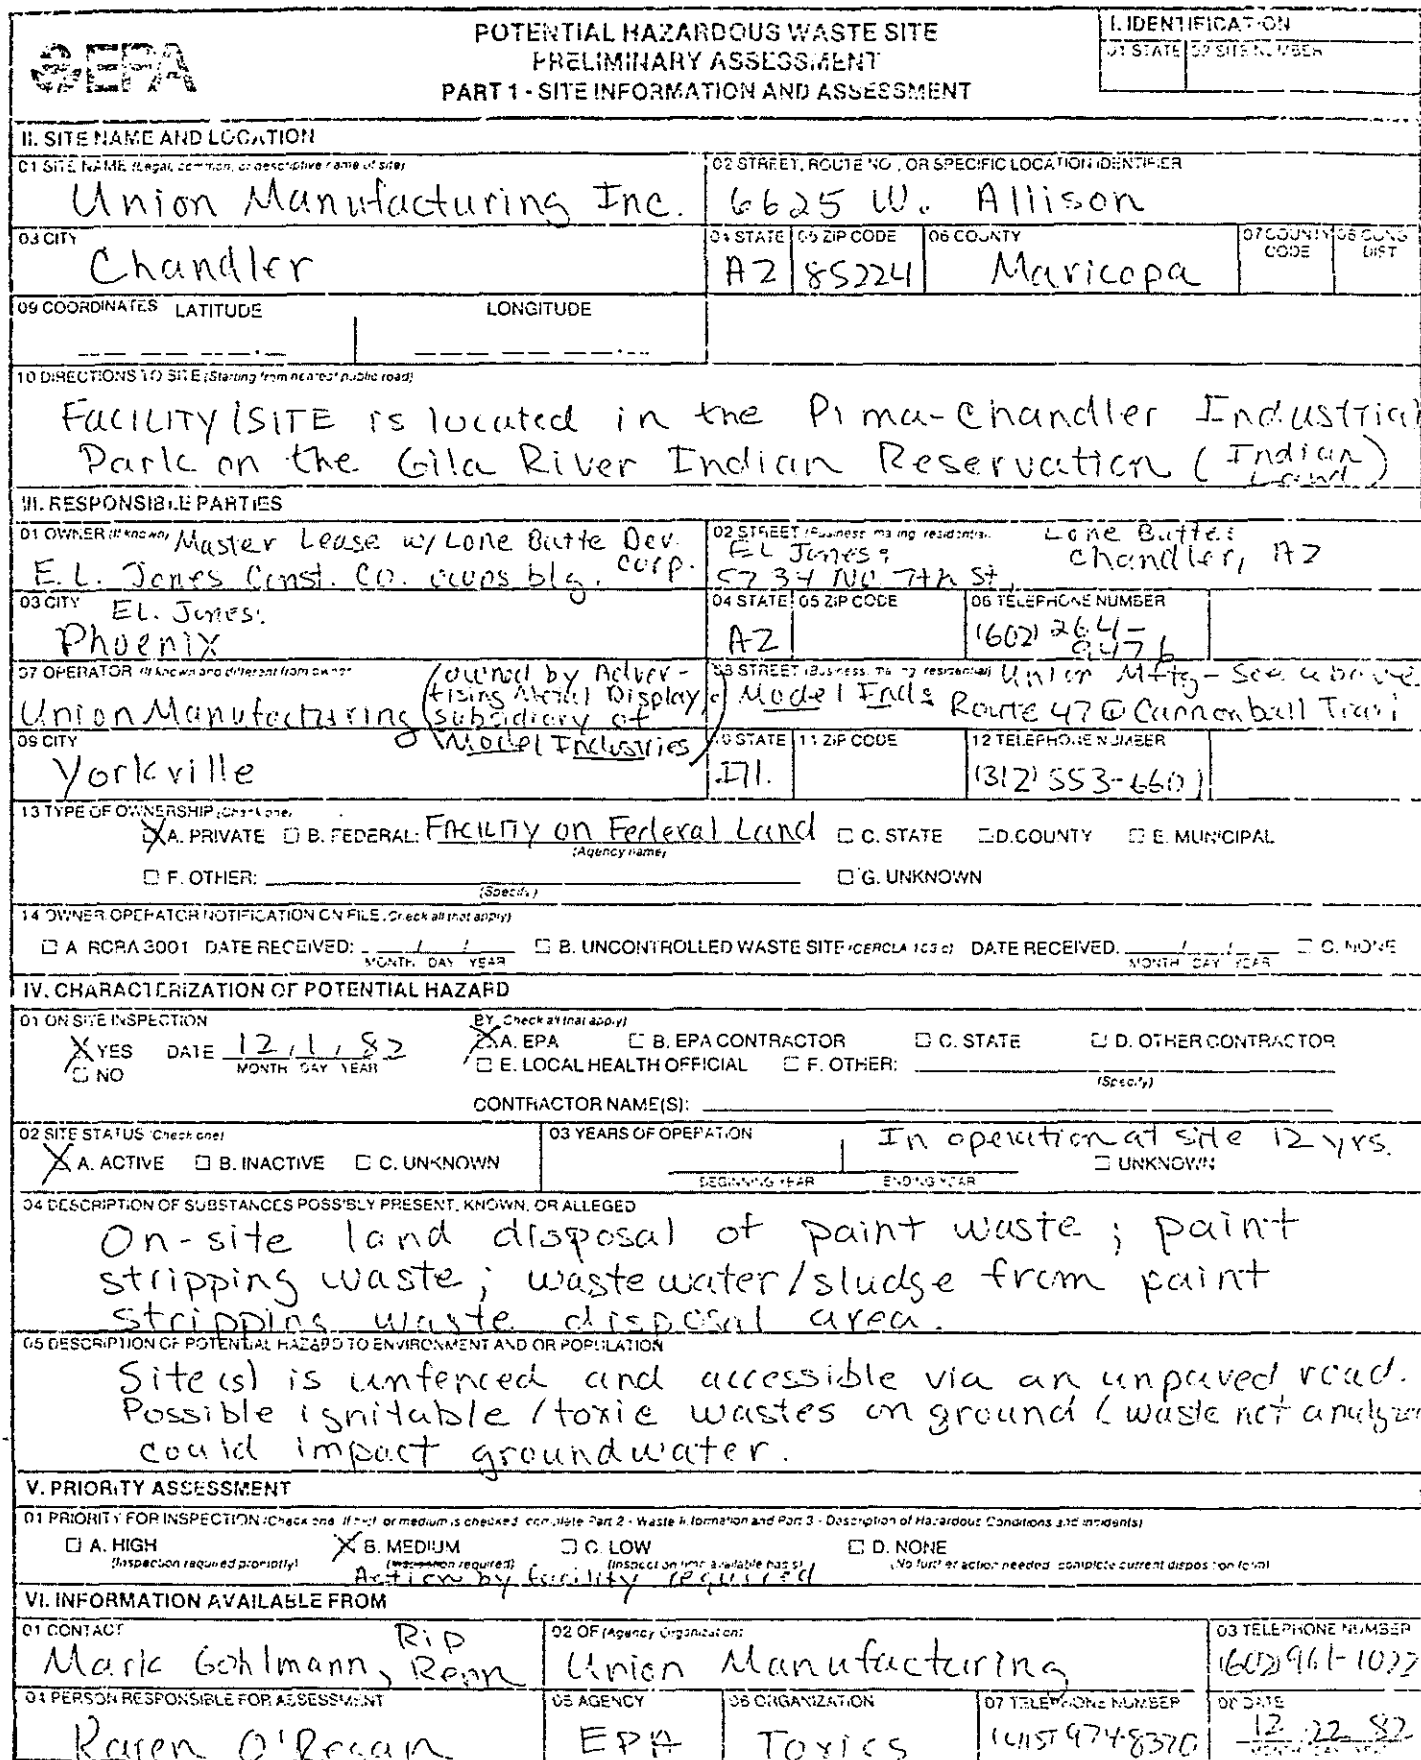 EPA
POTENTIAL HAZARDOUS WASTE SITE
PRELIMINARY ASSESSMENT
PART 1 - SITE INFORMATION AND ASSESSMENT
I. IDENTIFICATION
01 STATE 02 SITE NUMBER
II. SITE NAME AND LOCATION
01 SITE NAME (Legal, common, or descriptive name of site)
Union Manufacturing Inc.
02 STREET, ROUTE NO., OR SPECIFIC LOCATION IDENTIFIER
6625 W. Allison
03 CITY
Chandler
04 STATE
AZ
05 ZIP CODE
85224
06 COUNTY
Maricopa
07 COUNTY CODE
08 CONG DIST
09 COORDINATES LATITUDE LONGITUDE
10 DIRECTIONS TO SITE (Starting from nearest public road)
FACILITY/SITE is located in the Pima-Chandler Industrial
Park on the Gila River Indian Reservation (Indian Land)
III. RESPONSIBLE PARTIES
01 OWNER (If known) Master Lease w/ Lone Butte Dev. Corp.
E.L. Jones Const. Co. owns blg.
02 STREET (Business, mailing, residential)
EL Jones:
5734 No 7th St,
Lone Butte:
Chandler, AZ
03 CITY
EL. Jones:
Phoenix
04 STATE
AZ
05 ZIP CODE
06 TELEPHONE NUMBER
(602) 264-
9476
07 OPERATOR (If known and different from owner)
Union Manufacturing
(owned by Adver-
tising Metal Display,
subsidiary of
Model Industries)
08 STREET (Business, mailing, residential) Union Mftg - See above
Model Ind: Route 47 @ Cannonball Trail
09 CITY
Yorkville
10 STATE
Ill.
11 ZIP CODE
12 TELEPHONE NUMBER
(312) 553-6601
13 TYPE OF OWNERSHIP (Check one)
X A. PRIVATE □ B. FEDERAL: Facility on Federal Land □ C. STATE □ D. COUNTY □ E. MUNICIPAL
(Agency name)
□ F. OTHER: □ G. UNKNOWN
(Specify)
14 OWNER/OPERATOR NOTIFICATION ON FILE (Check all that apply)
□ A. RCRA 3001 DATE RECEIVED: / / □ B. UNCONTROLLED WASTE SITE (CERCLA 103 c) DATE RECEIVED: / / □ C. NONE
MONTH DAY YEAR MONTH DAY YEAR
IV. CHARACTERIZATION OF POTENTIAL HAZARD
01 ON SITE INSPECTION
X YES DATE 12/1/82
□ NO MONTH DAY YEAR
BY (Check all that apply)
X A. EPA □ B. EPA CONTRACTOR □ C. STATE □ D. OTHER CONTRACTOR
□ E. LOCAL HEALTH OFFICIAL □ F. OTHER:
(Specify)
CONTRACTOR NAME(S):
02 SITE STATUS (Check one)
X A. ACTIVE □ B. INACTIVE □ C. UNKNOWN
03 YEARS OF OPERATION
In operation at site 12 yrs.
□ UNKNOWN
BEGINNING YEAR ENDING YEAR
04 DESCRIPTION OF SUBSTANCES POSSIBLY PRESENT, KNOWN, OR ALLEGED
On-site land disposal of paint waste; paint
stripping waste; wastewater/sludge from paint
stripping waste disposal area.
05 DESCRIPTION OF POTENTIAL HAZARD TO ENVIRONMENT AND OR POPULATION
Site(s) is unfenced and accessible via an unpaved road.
Possible ignitable/toxic wastes on ground (waste not
could impact groundwater.
V. PRIORITY ASSESSMENT
01 PRIORITY FOR INSPECTION (Check one. If high or medium is checked, complete Part 2 - Waste Information and Part 3 - Description of Hazardous Conditions and Incidents)
□ A. HIGH X B. MEDIUM □ C. LOW □ D. NONE
(Inspection required promptly) (Inspection required) (Inspection on time available basis) (No further action needed, complete current disposition form)
Action by facility required
VI. INFORMATION AVAILABLE FROM
01 CONTACT
Mark Gohlmann, Rip Renn
02 OF (Agency/Organization)
Union Manufacturing
03 TELEPHONE NUMBER
(602) 961-1022
04 PERSON RESPONSIBLE FOR ASSESSMENT
Karen O'Regan
05 AGENCY
EPA
06 ORGANIZATION
Toxics
07 TELEPHONE NUMBER
(415) 974-8370
08 DATE
12 22 82
MONTH DAY YEAR